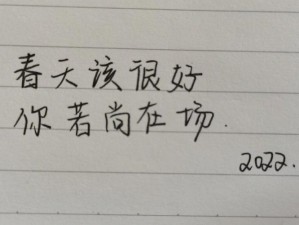 春天该很好
你若尚在场.
2022.